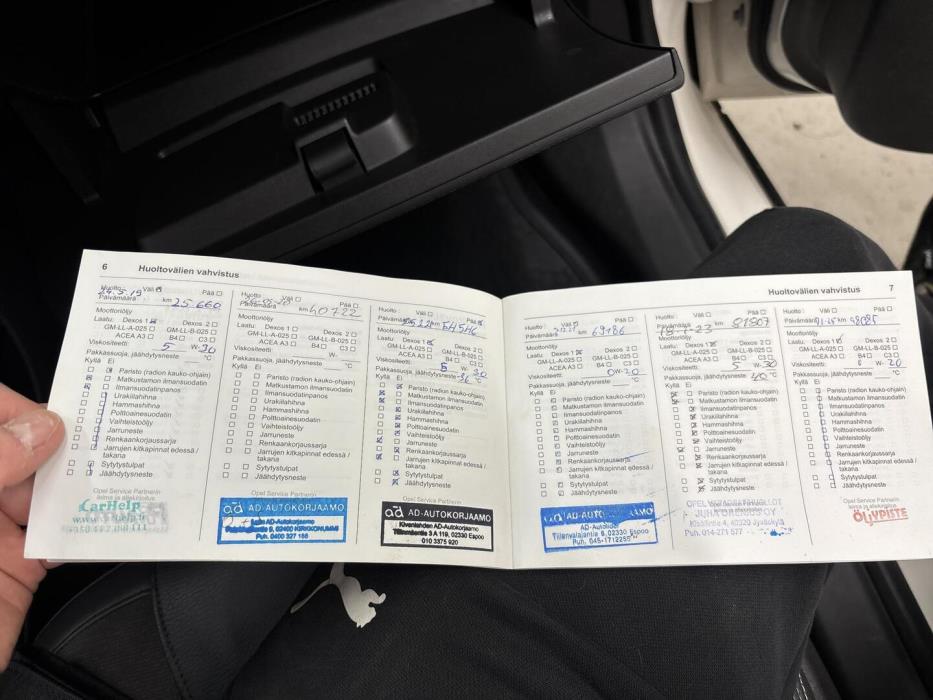 6 Huoltovälien vahvistus
Huolto Väli Pää
Päivämäärä 24.5.19 km 25.660
Moottoriöljy
Laatu: Dexos 1 Dexos 2
GM-LL-A-025 GM-LL-B-025
ACEA A3 B4 C3
Viskositeetti: 5 W- 30
Pakkassuoja, jäähdytysneste °C
Kyllä Ei
Paristo (radion kauko-ohjain)
Matkustamon ilmansuodatin
Ilmansuodatinpanos
Urakiilahihna
Hammashihna
Polttoainesuodatin
Vaihteistoöljy
Jarruneste
Renkaankorjaussarja
Jarrujen kitkapinnat edessä /
takana
Sytytystulpat
Jäähdytysneste
Opel Service Partnerin
leima ja allekirjoitus
CarHelp
Huolto Väli Pää
Päivämäärä km 40722
Moottoriöljy
Laatu: Dexos 1 Dexos 2
GM-LL-A-025 GM-LL-B-025
ACEA A3 B4 C3
Viskositeetti: W-
Pakkassuoja, jäähdytysneste °C
Kyllä Ei
Paristo (radion kauko-ohjain)
Matkustamon ilmansuodatin
Ilmansuodatinpanos
Urakiilahihna
Hammashihna
Polttoainesuodatin
Vaihteistoöljy
Jarruneste
Renkaankorjaussarja
Jarrujen kitkapinnat edessä /
takana
Sytytystulpat
Jäähdytysneste
Opel Service Partnerin
ad AD-AUTOKORJAAMO
AD-Autokorjaamo
02400 KIRKKONUMMI
Puh. 0400 327 166
Huolto Väli Pää
Päivämäärä km 54546
Moottoriöljy
Laatu: Dexos 1 Dexos 2
GM-LL-A-025 GM-LL-B-025
ACEA A3 B4 C3
Viskositeetti: 5 W- 30
Pakkassuoja, jäähdytysneste -36 °C
Kyllä Ei
Paristo (radion kauko-ohjain)
Matkustamon ilmansuodatin
Ilmansuodatinpanos
Urakiilahihna
Hammashihna
Polttoainesuodatin
Vaihteistoöljy
Jarruneste
Renkaankorjaussarja
Jarrujen kitkapinnat edessä /
takana
Sytytystulpat
Jäähdytysneste
Opel Service Partnerin
ad AD-AUTOKORJAAMO
Kivenlahden AD-Autokorjaamo
3 A 119, 02330 Espoo
010 3375 920
Huoltovälien vahvistus 7
Huolto Väli Pää
Päivämäärä km 69786
Moottoriöljy
Laatu: Dexos 1 Dexos 2
GM-LL-A-025 GM-LL-B-025
ACEA A3 B4 C3
Viskositeetti: 0 W- 20
Pakkassuoja, jäähdytysneste °C
Kyllä Ei
Paristo (radion kauko-ohjain)
Matkustamon ilmansuodatin
Ilmansuodatinpanos
Urakiilahihna
Hammashihna
Polttoainesuodatin
Vaihteistoöljy
Jarruneste
Renkaankorjaussarja
Jarrujen kitkapinnat edessä /
takana
Sytytystulpat
Jäähdytysneste
02330 Espoo
Huolto Väli Pää
Päivämäärä km 81807
Moottoriöljy
Laatu: Dexos 1 Dexos 2
GM-LL-A-025 GM-LL-B-025
ACEA A3 B4 C3
Viskositeetti: 5 W- 30
Pakkassuoja, jäähdytysneste 40 °C
Kyllä Ei
Paristo (radion kauko-ohjain)
Matkustamon ilmansuodatin
Ilmansuodatinpanos
Urakiilahihna
Hammashihna
Polttoainesuodatin
Vaihteistoöljy
Jarruneste
Renkaankorjaussarja
Jarrujen kitkapinnat edessä /
takana
Sytytystulpat
Jäähdytysneste
40320 Jyväskylä
Puh. 014-271 577
Huolto Väli Pää
Päivämäärä km 98085
Moottoriöljy
Laatu: Dexos 1 Dexos 2
GM-LL-A-025 GM-LL-B-025
ACEA A3 B4 C3
Viskositeetti: 0 W- 20
Pakkassuoja, jäähdytysneste °C
Kyllä Ei
Paristo (radion kauko-ohjain)
Matkustamon ilmansuodatin
Ilmansuodatinpanos
Urakiilahihna
Hammashihna
Polttoainesuodatin
Vaihteistoöljy
Jarruneste
Renkaankorjaussarja
Jarrujen kitkapinnat edessä /
takana
Sytytystulpat
Jäähdytysneste
Opel Service Partnerin
leima ja allekirjoitus
ÖLJYPISTE